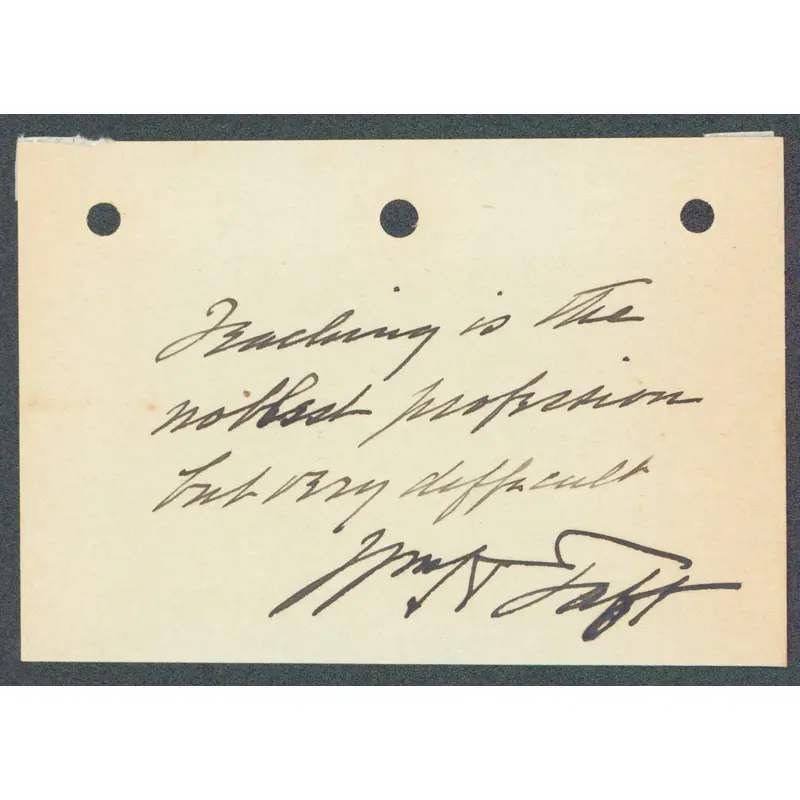 Teaching is the
noblest profession
but very difficult
Wm H Taft